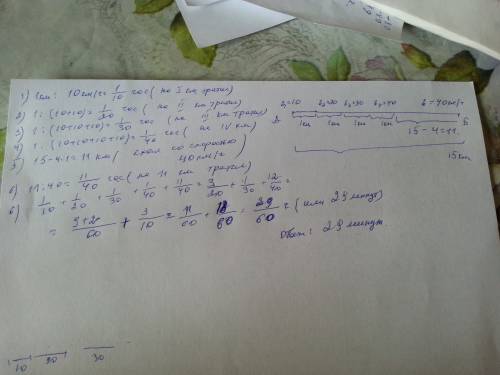 1) 1 км: 10 км/ч = 1/10 час (на I км тратил)
2) 1 : (10+10) = 1/20 час (на II км тратил)
3) 1 : (10+10+10) = 1/30 час (на III км тратил)
4) 1 : (10+10+10+10) = 1/40 час (на IV км)
5) 15 - 4·1 = 11 км (ехал со скоростью 40 км/ч)
6) 11 : 40 = 11/40 час (на 11 км тратил)
6) 1/10 + 1/20 + 1/30 + 1/40 + 11/40 = 3/20 + 1/30 + 12/40 =
= 9+2/60 + 3/10 = 11/60 + 18/60 = 29/60 ч (или 29 минут)
Ответ: 29 минут
v₁=10 v₂=20 v₃=30 v₄=40 v=40 км/ч
A 1км 1км 1км 1км Б
15 - 4 = 11
15 км
10 20 30